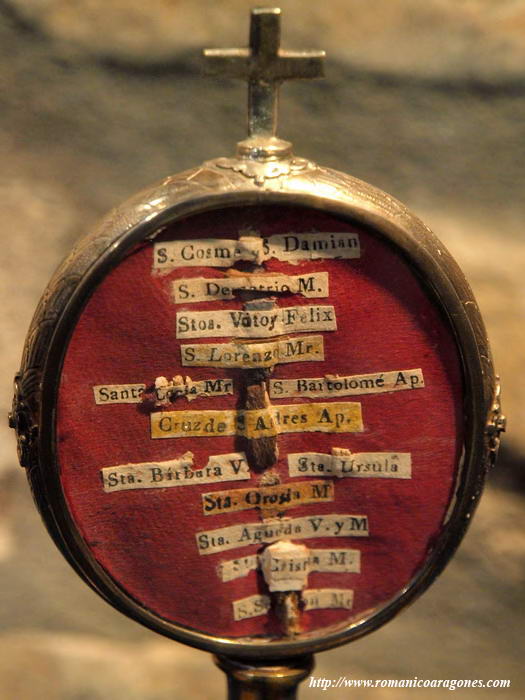 S. Cosma y S. Damian
S. Demetrio M.
Stos. Voto y Felix
S. Lorenzo Mr.
Santa Mr
S. Bartolomé Ap.
Cruz de S Adres Ap.
Sta. Bárbara V.
Sta. Ursula
Sta. Orosia M
Sta. Agueda V. y M
M.
S. Mr
http://www.romanicoaragones.com